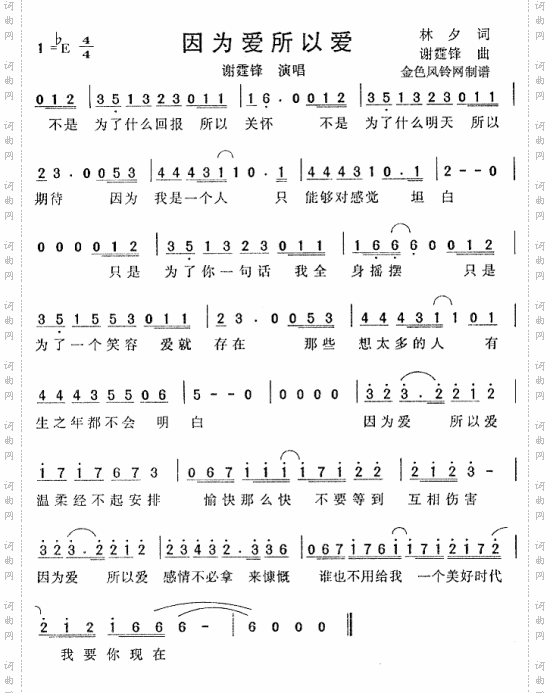 因为爱所以爱
1=♭E 4/4
林夕 词
谢霆锋 曲
谢霆锋 演唱
金色风铃网制谱
0 1 2 | 3 5 1 3 2 3 0 1 1 | 1 6 · 0 0 0 1 2 | 3 5 1 3 2 3 0 1 1 |
不是 为了什么回报 所以 关怀 不是 为了什么明天 所以
2 3 · 0 0 5 3 | 4 4 4 3 1 1 0 · 1 | 4 4 4 3 1 0 · 1 | 2 - - 0
期待 因为 我是一个人 只 能够对感觉 坦 白
0 0 0 0 1 2 | 3 5 1 3 2 3 0 1 1 | 1 6 6 6 0 0 1 2 |
只是 为了你一句话 我全 身摇摆 只是
3 5 1 5 5 3 0 1 1 | 2 3 · 0 0 5 3 | 4 4 4 3 1 1 0 1 |
为了一个笑容 爱就 存在 那些 想太多的人 有
4 4 4 3 5 5 0 6 | 5 - - 0 | 0 0 0 0 | 3 2 3 · 2 2 1 2 |
生之年都不会 明 白 因为爱 所以爱
1 7 1 7 6 7 3 | 0 6 7 1 1 1 1 7 1 2 2 | 2 1 2 3 - |
温柔经不起安排 愉快那么快 不要等到 互相伤害
3 2 3 · 2 2 1 2 | 2 3 4 3 2 2 · 3 3 6 | 0 6 7 1 7 6 1 1 7 1 2 1 7 |
因为爱 所以爱 感情不必拿 来慷慨 谁也不用给我 一个美好时代
2 1 2 1 6 6 6 - | 6 0 0 0 ‖
我要你现在
词曲网